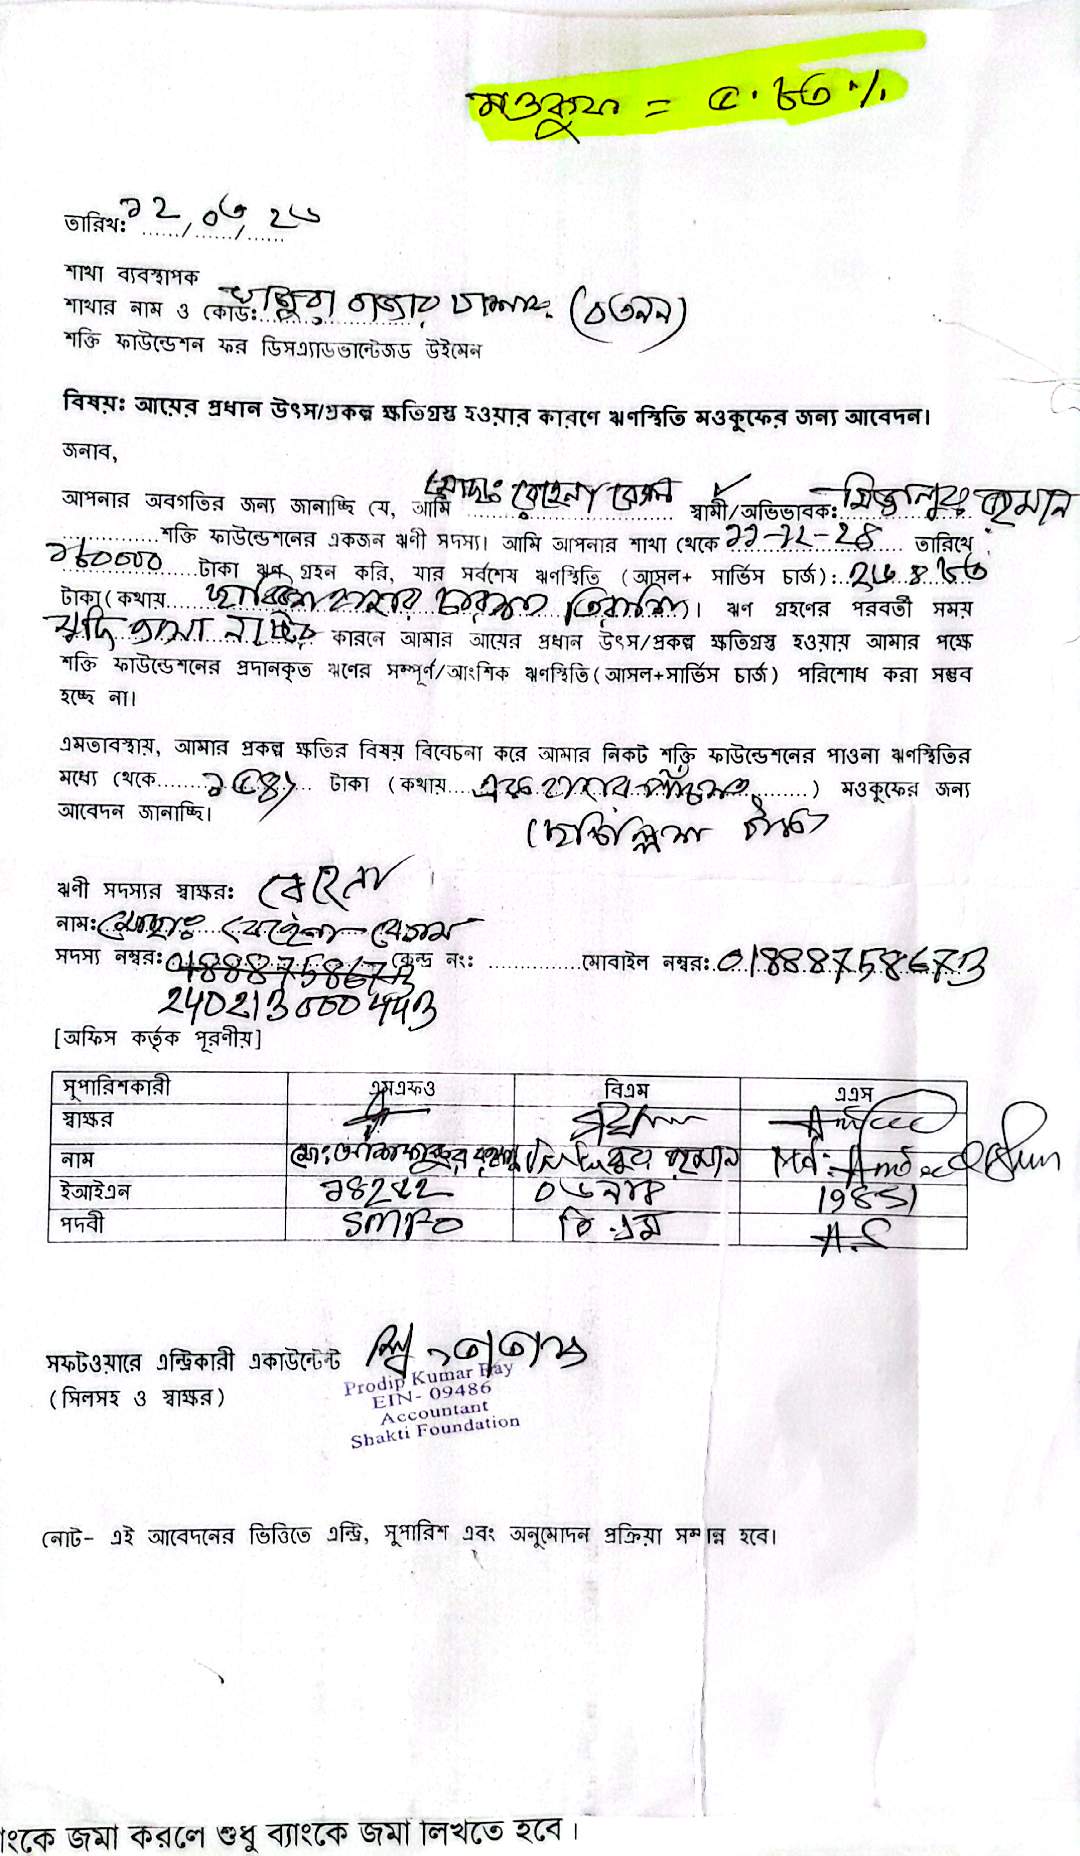 মওকুফ = ৫.৮৩%
তারিখ: ১২/০৩/২৬
শাখা ব্যবস্থাপক
শাখার নাম ও কোড: বাজার
শক্তি ফাউন্ডেশন ফর ডিসএ্যাডভান্টেজড উইমেন
বিষয়ঃ আয়ের প্রধান উৎস/প্রকল্প ক্ষতিগ্রস্থ হওয়ার কারণে ঋণস্থিতি মওকুফের জন্য আবেদন।
জনাব,
আপনার অবগতির জন্য জানাচ্ছি যে, আমি মোছাঃ রেহেনা বেগম স্বামী/অভিভাবক: মিজানুর রহমান
শক্তি ফাউন্ডেশনের একজন ঋণী সদস্য। আমি আপনার শাখা থেকে ১১-১২-২৪ তারিখে
১৮০০০০ টাকা ঋণ গ্রহন করি, যার সর্বশেষ ঋণস্থিতি (আসল+ সার্ভিস চার্জ): ২৬৪৮৩
টাকা(কথায় ছাব্বিশ হাজার চারশত তিরাশি)। ঋণ গ্রহণের পরবর্তী সময়
কারনে আমার আয়ের প্রধান উৎস/প্রকল্প ক্ষতিগ্রস্থ হওয়ায় আমার পক্ষে
শক্তি ফাউন্ডেশনের প্রদানকৃত ঋণের সম্পূর্ণ/আংশিক ঋণস্থিতি(আসল+সার্ভিস চার্জ) পরিশোধ করা সম্ভব
হচ্ছে না।
এমতাবস্থায়, আমার প্রকল্প ক্ষতির বিষয় বিবেচনা করে আমার নিকট শক্তি ফাউন্ডেশনের পাওনা ঋণস্থিতির
মধ্যে থেকে ১৫৪১ টাকা (কথায় এক হাজার পাঁচশত ) মওকুফের জন্য
আবেদন জানাচ্ছি। টাকা
ঋণী সদস্যর স্বাক্ষর: রেহেনা
নাম: মোছাঃ রেহেনা বেগম
সদস্য নম্বর: 01888758673 কেন্দ্র নং: মোবাইল নম্বর: 01888758673
240213000443
[অফিস কর্তৃক পূরণীয়]
সুপারিশকারী এমএফও বিএম এএস
স্বাক্ষর
নাম মোঃ রহমান
ইআইএন 19851
পদবী SMFO বি.এম A.S
সফটওয়ারে এন্ট্রিকারী একাউন্টেন্ট
(সিলসহ ও স্বাক্ষর)
Prodip Kumar Ray
EIN- 09486
Accountant
Shakti Foundation
নোট- এই আবেদনের ভিত্তিতে এন্ট্রি, সুপারিশ এবং অনুমোদন প্রক্রিয়া সম্পন্ন হবে।
াংকে জমা করলে শুধু ব্যাংকে জমা লিখতে হবে।